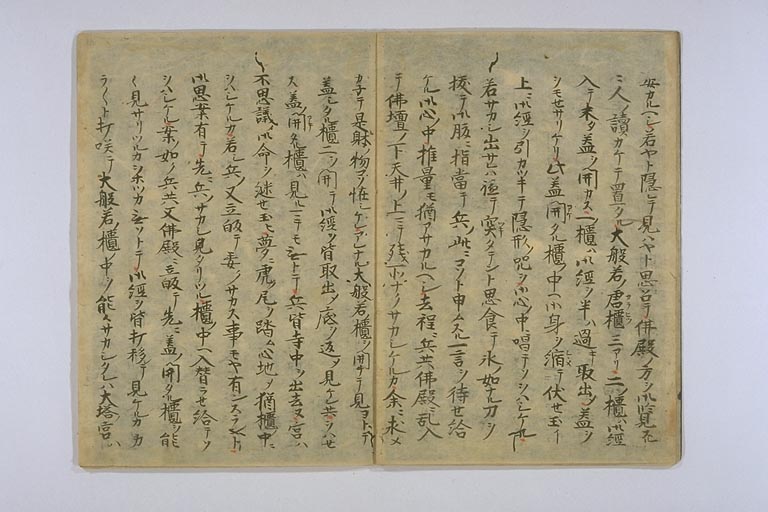 安カルヘシ若ヤト隠レテ見ハヤト思召テ佛殿ノ方ヲ御覧スレ
ハ人ノ讀カケテ置タル大般若ノ唐櫃三アリ二ノ櫃ハ御經
入テ未タ蓋ヲ開カス一ノ櫃ハ御經ヲ半ハ過キ取出シ蓋ヲ
シモセサリケリ此蓋開タル櫃ノ中ヘ御身ヲ縮テ伏セ玉イ
上ニ御經ヲ引カツキテ隠形ノ咒ヲ御心中ニ唱テソヲハシケル
若サカシ出サレハ頓テ突タテント思食テ氷ノ如ナル刀ヲ
抜テ御腹ニ指當テ兵此ニコソト申ムスル一言ヲ待セ給
ケル御心ノ中推量モ猶アサカルヘシ去程ニ兵共佛殿ニ乱入
テ佛壇ノ下天井ノ上ニテモ残所ナクサカシケルカ余ニ求メ
カ子テ是躰ノ物コソ怪シケレアレナル大般若ノ櫃ヲ開ケテ見ヨトテ
蓋シタル櫃二ヲ開テ御經ヲ皆取出シ底ヲ返シテ見ケレ共ヲハセ
ス蓋開タル櫃ハ見ルマテモ無トテ兵皆寺中ヲ出去ヌ宮ハ
不思議ノ御命ヲ継セ玉ヒ夢ニ虎ノ尾ヲ踏ム心地シテ猶櫃中ニ
ヲハシケルカ若シ兵又立皈テ委ノサカス事モヤ有ンスラント
御思案有テ先ニ兵ノサカシ見タリツル櫃ノ中ヘ入替ラセ給テソ
ヲハシケル案ノ如ク兵共又佛殿ニ立皈テ先ニ蓋ノ開タル櫃ヲ能
ク見サリツルカヲホツカナシトテ御經ヲ皆打移テ見ケルカカ
ラ〳〵ト打咲テ大般若ノ櫃ノ中ヲ能々サカシタレハ大塔宮ハ